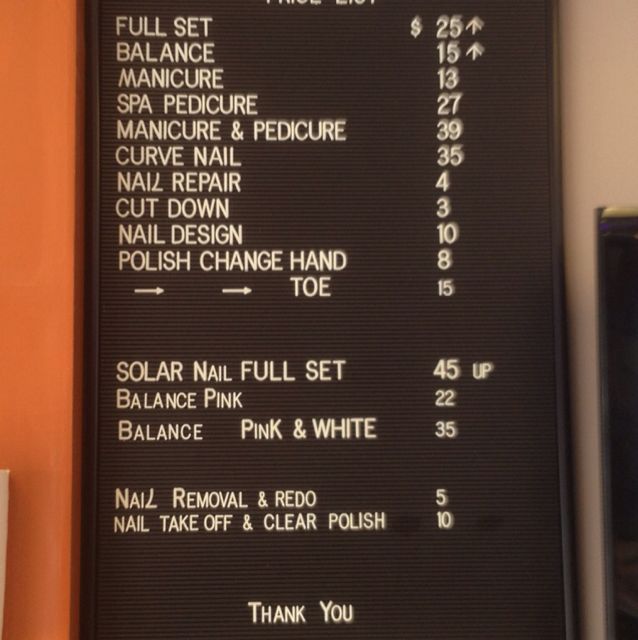 PRICE LIST
FULL SET $ 25↑
BALANCE 15↑
MANICURE 13
SPA PEDICURE 27
MANICURE & PEDICURE 39
CURVE NAIL 35
NAIL REPAIR 4
CUT DOWN 3
NAIL DESIGN 10
POLISH CHANGE HAND 8
→ → TOE 15
SOLAR NAIL FULL SET 45 UP
BALANCE PINK 22
BALANCE PINK & WHITE 35
NAIL REMOVAL & REDO 5
NAIL TAKE OFF & CLEAR POLISH 10
THANK YOU